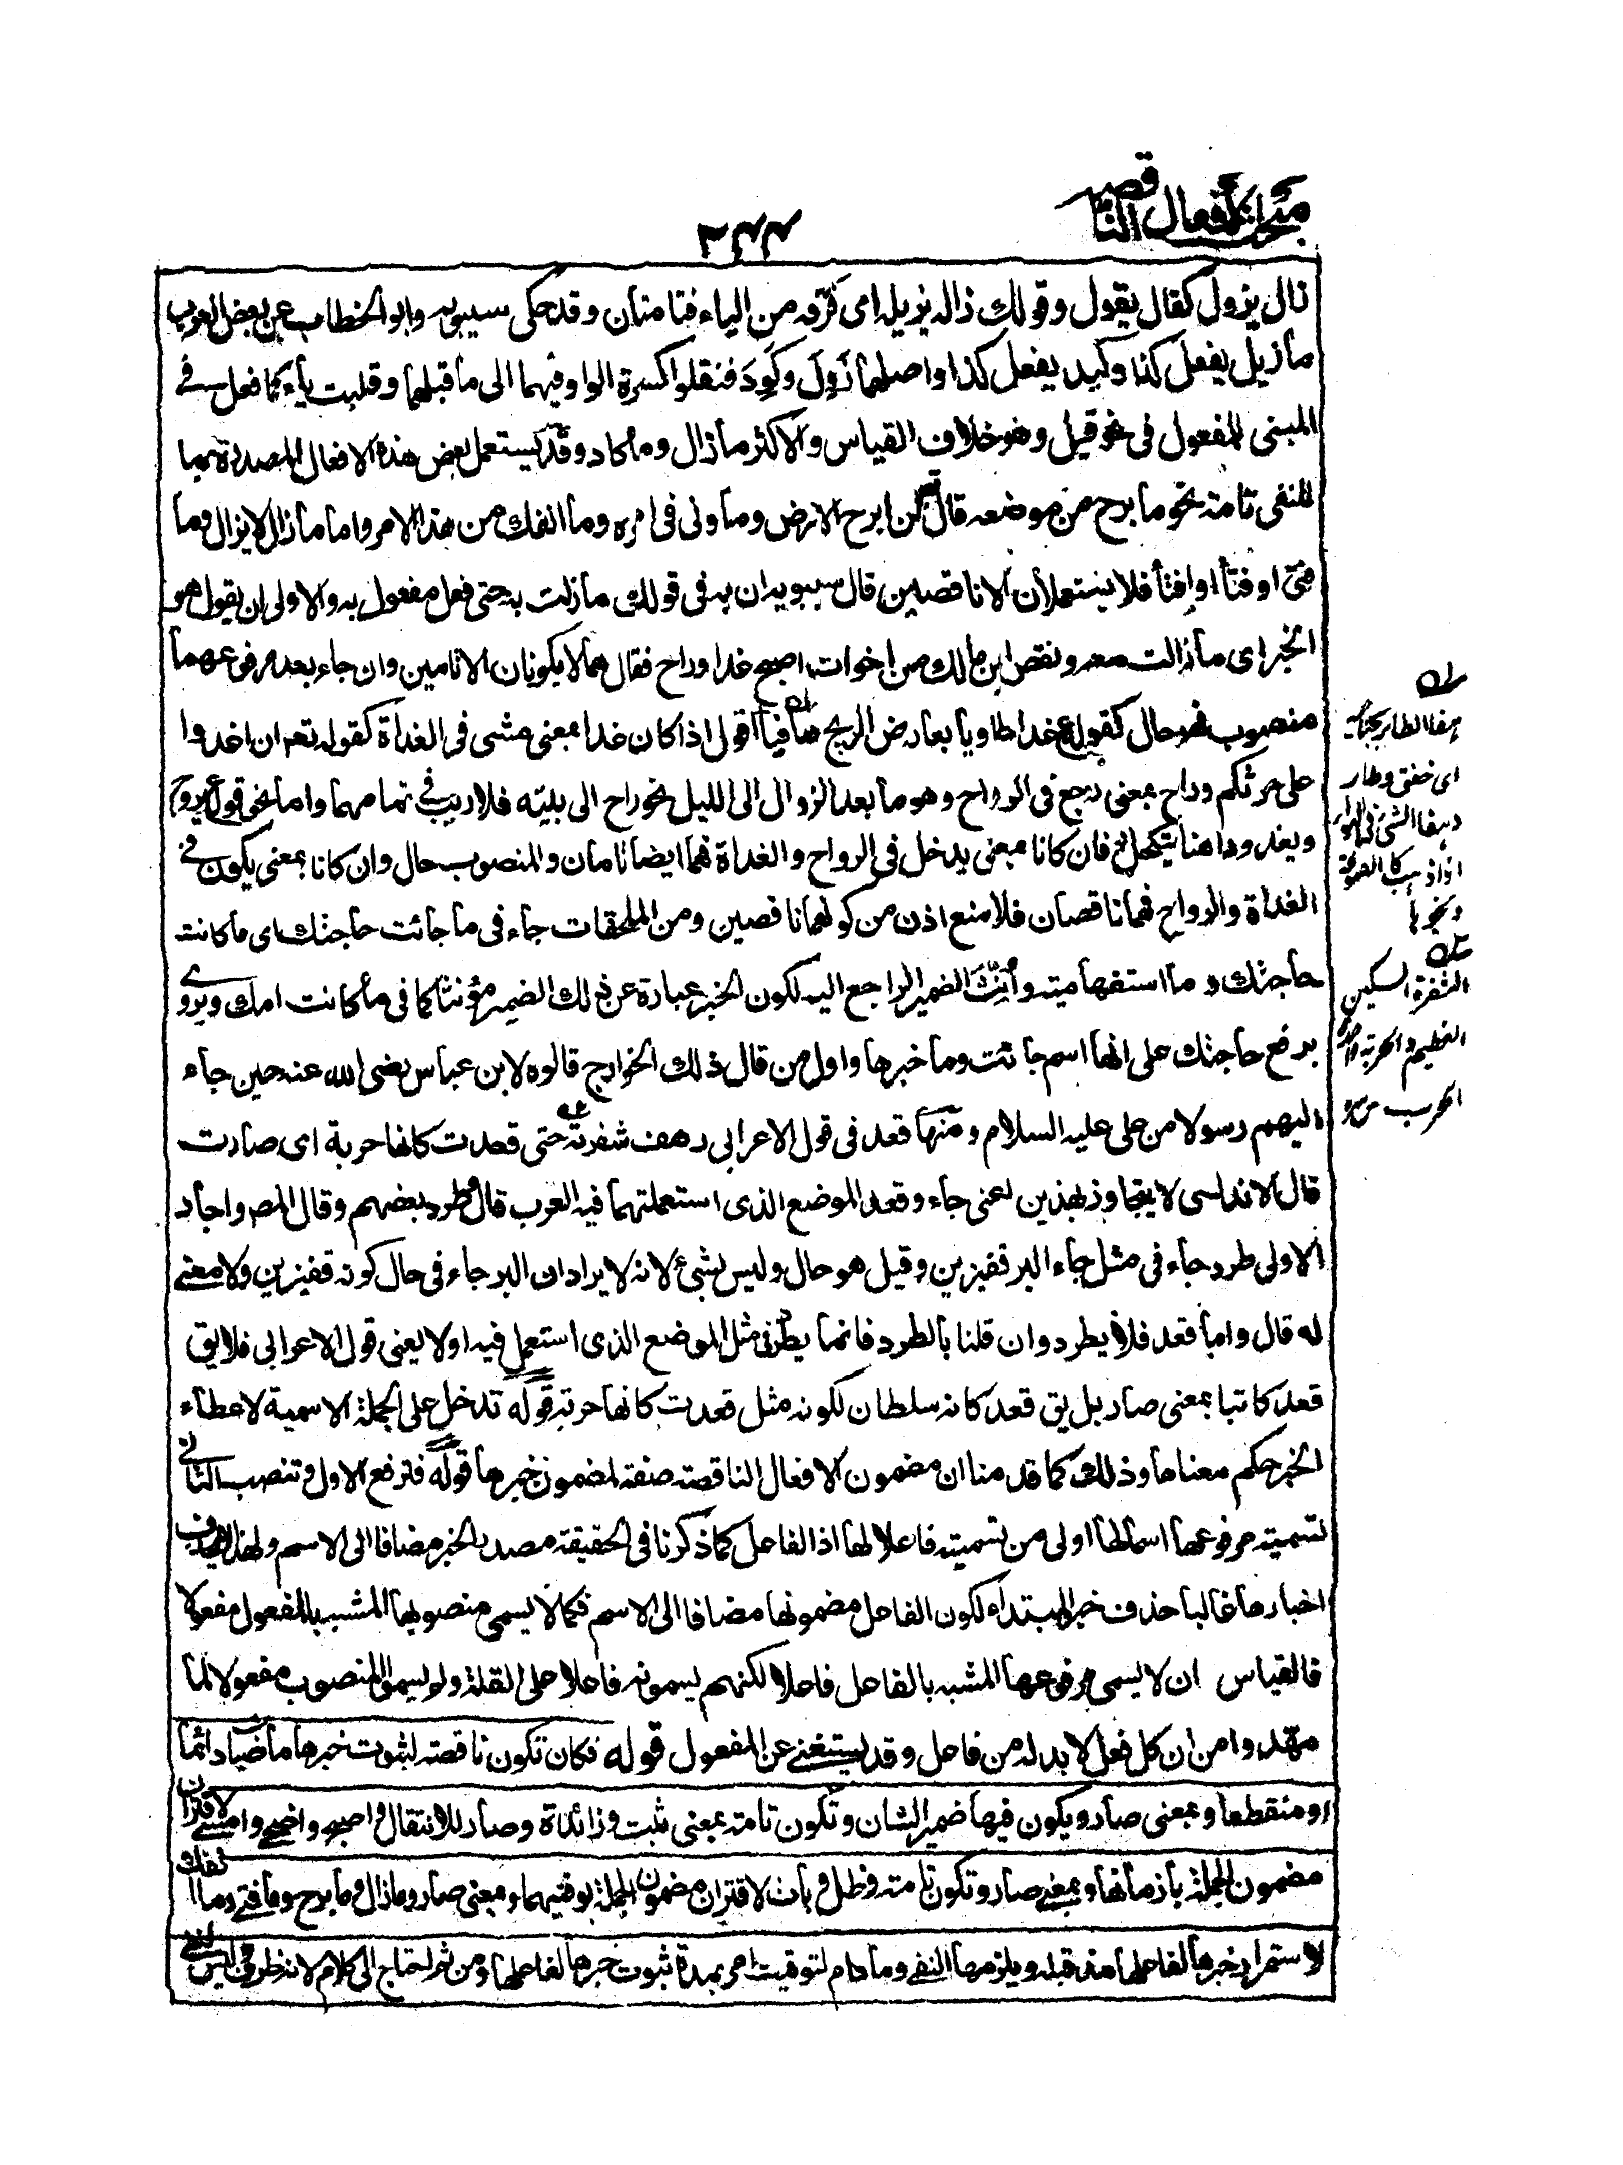 مبحث الافعال الناقصة
٢٣٣
زال يزول كقال يقول وقولك زاله يزيله اى فرّقه من الياء فتامتان وقد حكى سيبويه وابو الخطاب عن بعض العرب
ما زيل يفعل كذا وكيد يفعل كذا واصلهما زَوِلَ وكَوِدَ فنقلوا كسرة الواو فيهما الى ما قبلهما وقلبت ياء كما فعل فى
المبنى للمفعول فى نحو قيل وهو خلاف القياس والاكثر ما زال وما كاد وقد يستعمل بعض هذه الافعال المصدرة بما
للنفى تامة نحو ما برح من موضعه قال تعم لن ابرح الارض وما ونى فى امره وما انفك من هذا الامر واما ما زال لا يزال وما
فتئ او فتأ او افتأ فلا يستعملان الا ناقصين قال سيبويه ان به فى قولك ما زلت به حتى فعل مفعول به والاولى ان يقول هو
الخبر اى ما زالت معه ونقص ابن مالك من اخوات اصبح غدا وراح فقال هما لا يكونان الا تامين وان جاء بعد مرفوعهما
منصوب فهو حال كقوله ع غدا طاويا يعارض الريح هافيا اقول اذا كان غدا بمعنى مشى فى الغداة كقوله تعم ان اغدوا
على حرثكم وراح بمعنى رجع فى الرواح وهو ما بعد الزوال الى الليل نحو راح الى بيته فلا ريب فى تمامهما واما نحو قوله ع يروح
ويغدو داهنا يتكحل فان كانا بمعنى يدخل فى الرواح والغداة فهما ايضا تامان والمنصوب حال وان كانا بمعنى يكون فى
الغداة والرواح فهما ناقصان فلا منع اذن من كونهما ناقصين ومن الملحقات جاء فى ما جائت حاجتك اى ما كانت
حاجتك و ما استفهامية وأُنِّثَ الضمير الراجع اليه لكون الخبر عبارة عن ذلك الضمير مؤنثا كما فى ما كانت امك ويروى
برفع حاجتك على انها اسم جائت وما خبرها واول من قال ذلك الخوارج قالوه لابن عباس رضى الله عنه حين جاء
اليهم رسولا من على عليه السلام ومنها قعد فى قول الاعرابى رهف شفرته حتى قعدت كانها حربة اى صارت
قال الاندلسى لا يتجاوز بهذين اعنى جاء وقعد الموضع الذى استعملتهما فيه العرب قال وطرد بعضهم وقال المصر واجاد
الاولى طرد جاء فى مثل جاء البر قفيزين وقيل هو حال وليس بشئ لانه لا يراد ان البر جاء فى حال كونه قفيزين ولا معنى
له قال واما قعد فلا يطرد وان قلنا بالطرد فانما يطرد فى مثل الموضع الذى استعمل فيه اولا يعنى قول الاعرابى فلا يق
قعد كاتبا بمعنى صار بل يق قعد كانه سلطان لكونه مثل قعدت كانها حربة قوله تدخل على الجملة الاسمية لاعطاء
الخبر حكم معناها وذلك كما قدمنا ان مضمون الافعال الناقصة صفة لمضمون خبرها قوله فترفع الاول وتنصب الثانى
تسمية مرفوعها اسما لها اولى من تسميته فاعلا لها اذ الفاعل كما ذكرنا فى الحقيقة مصدر الخبر مضافا الى الاسم ولهذا لا يحذف
اخبارها غالبا حذف خبر المبتداء لكون الفاعل مضمونها مضافا الى الاسم فكما لا يسمى منصوبها المشبه بالمفعول مفعولا
فالقياس ان لا يسمى مرفوعها المشبه بالفاعل فاعلا لكنهم يسمونه فاعلا على القلة ولم يسموا المنصوب مفعولا لما
مهّدوا من ان كل فعل لا بد له من فاعل وقد يستغنى عن المفعول قوله فكان تكون ناقصة لثبوت خبرها ماضيا دائما
او منقطعا وبمعنى صار ويكون فيها ضمير الشان وتكون تامة بمعنى ثبت وزائدة وصار للانتقال واصبح واضحى وامسى لاقتران
مضمون الجملة بازمانها وبمعنى صار وتكون تامة وظل وبات لاقتران مضمون الجملة بوقتيهما وبمعنى صار وما زال وما برح وما فتئ وما انفك
لاستمرار خبرها لفاعلها مذ قبله ويلزمها النفى وما دام لتوقيت امر بمدة ثبوت خبرها لفاعلها ومن ثم احتاج الى كلام لانه ظرف وليس لنفى
هفا الطاير بجناحيه
اى خفق وطار
وهفا الشئ فى الهواء
اذا ذهب كالصوفة
ونحوها
الشفرة السكين
العظيم والحربة واحدة
الحراب